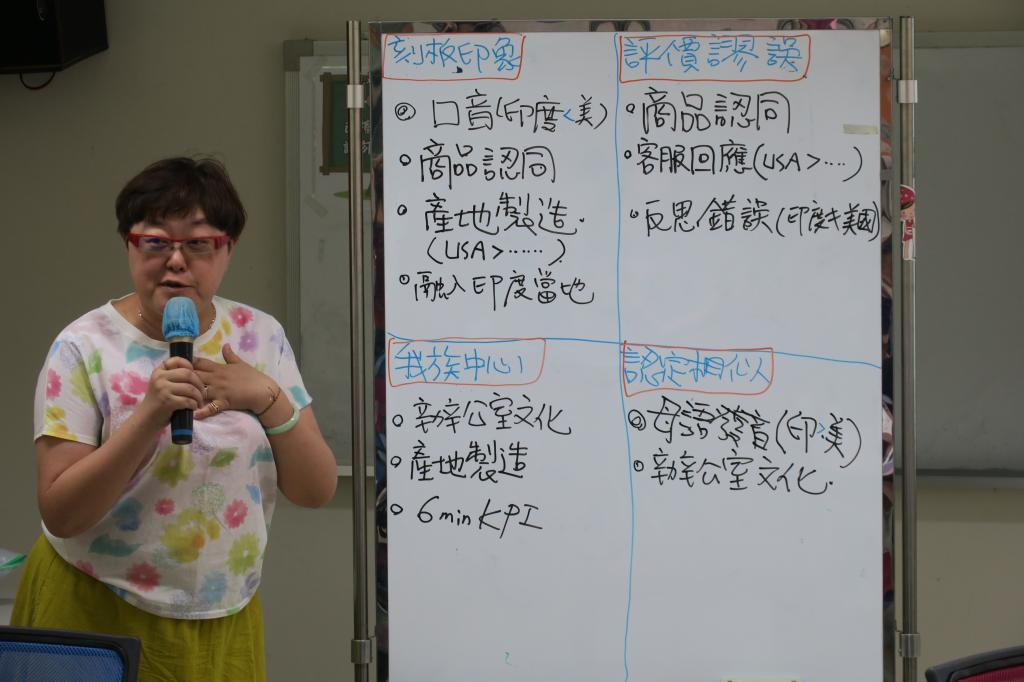 刻板印象
口音(印度<美)
商品認同
產地製造.
(USA>......)
融入印度當地
評價謬誤
商品認同
客服回應(USA>....)
反思/錯誤(印度≠美國)
我族中心
辦公室文化
產地製造
6min KPI
認定相似
母語發音(印>美)
辦公室文化.